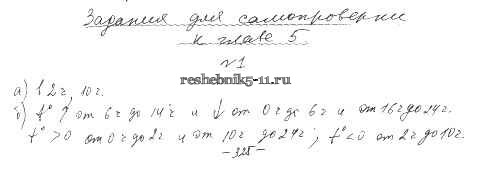 Задания для самопроверки
к главе 5
№1
reshebnik5-11.ru
а) 2г, 10г.
б) t° ↑ от 6г до 14г и ↓ от 0г до 6г и от 16г до 24г.
t° >0 от 0г до 2г и от 10г до 24г; t° <0 от 2г до 10г.
-325-